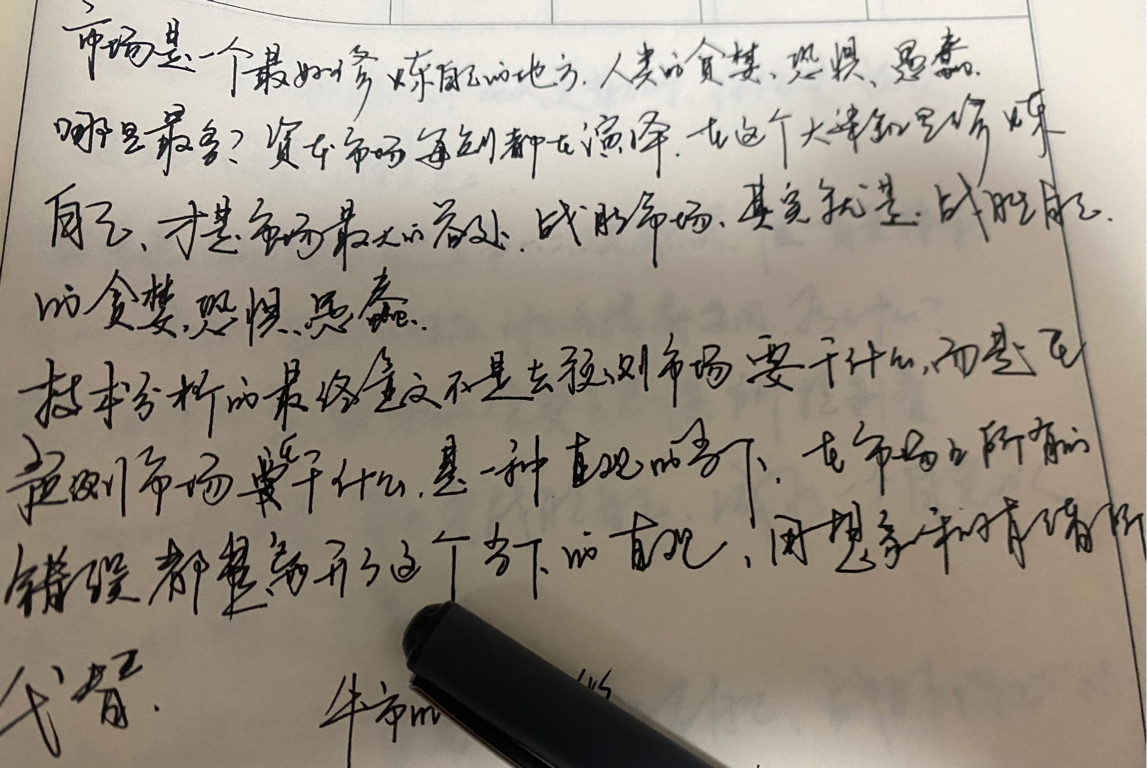 市场是一个最好修炼自己的地方.人类的贪婪、恐惧、愚蠢.
哪里最多?资本市场每刻都在演绎.在这个大染缸里修炼
自己、才是市场最大的益处.战胜市场、其实就是战胜自己.
的贪婪、恐惧、愚蠢.
技术分析的最终意义不是去预测市场要干什么,而是在
市场要干什么.是一种直观的当下、在市场上所有的
错误都是离开了这个当下的直观、用想象和情绪所
代替.
牛市的